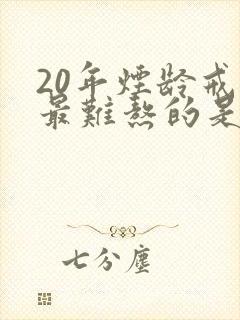 20年煙齡戒
最難熬的是
七分塵